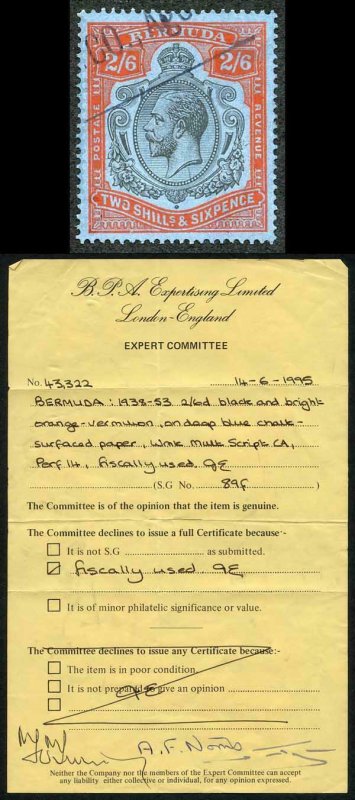 COL
BERMUDA
2/6 2/6
POSTAGE
REVENUE
TWO SHILLS & SIXPENCE
B.P.A. Expertising Limited
London-England
EXPERT COMMITTEE
No. 43,322 14-6-1995
BERMUDA: 1938-53 2/6d black and bright
orange-vermilion, on deep blue chalk-
surfaced paper, Wmk Mult Script CA,
Perf 14, fiscally used, 9E
(S.G No. 89f )
The Committee is of the opinion that the item is genuine.
The Committee declines to issue a full Certificate because:-
It is not S.G as submitted.
fiscally used 9E
It is of minor philatelic significance or value.
The Committee declines to issue any Certificate because:-
The item is in poor condition.
It is not prepared to give an opinion
9E
A.F. Norris
Neither the Company nor the members of the Expert Committee can accept
any liability either collective or individual, for any opinion expressed.